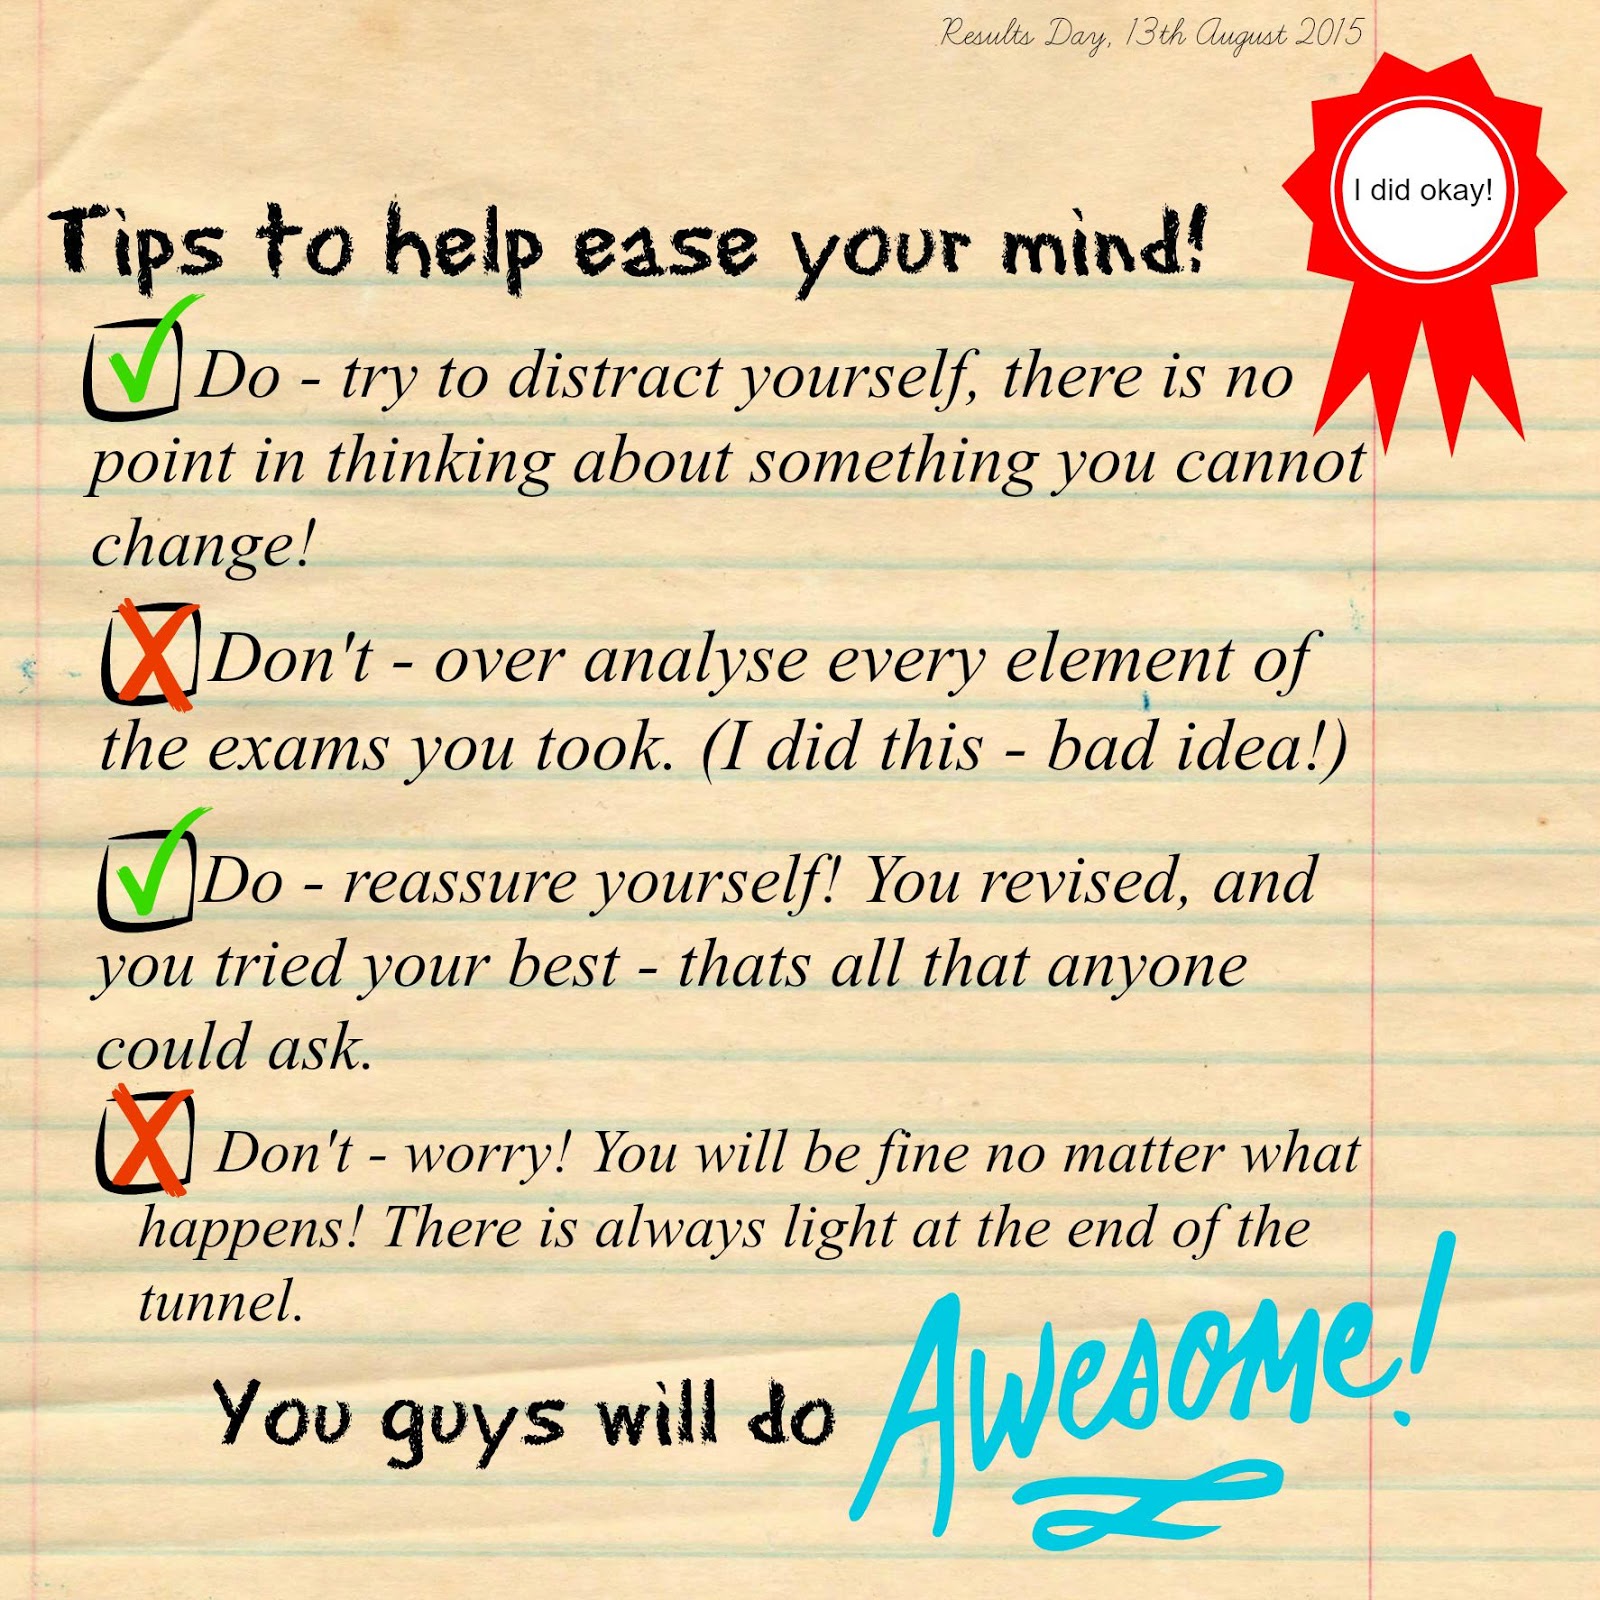 Results Day, 13th August 2015
I did okay!
Tips to help ease your mind!
Do - try to distract yourself, there is no
point in thinking about something you cannot
change!
Don't - over analyse every element of
the exams you took. (I did this - bad idea!)
Do - reassure yourself! You revised, and
you tried your best - thats all that anyone
could ask.
Don't - worry! You will be fine no matter what
happens! There is always light at the end of the
tunnel.
You guys will do Awesome!